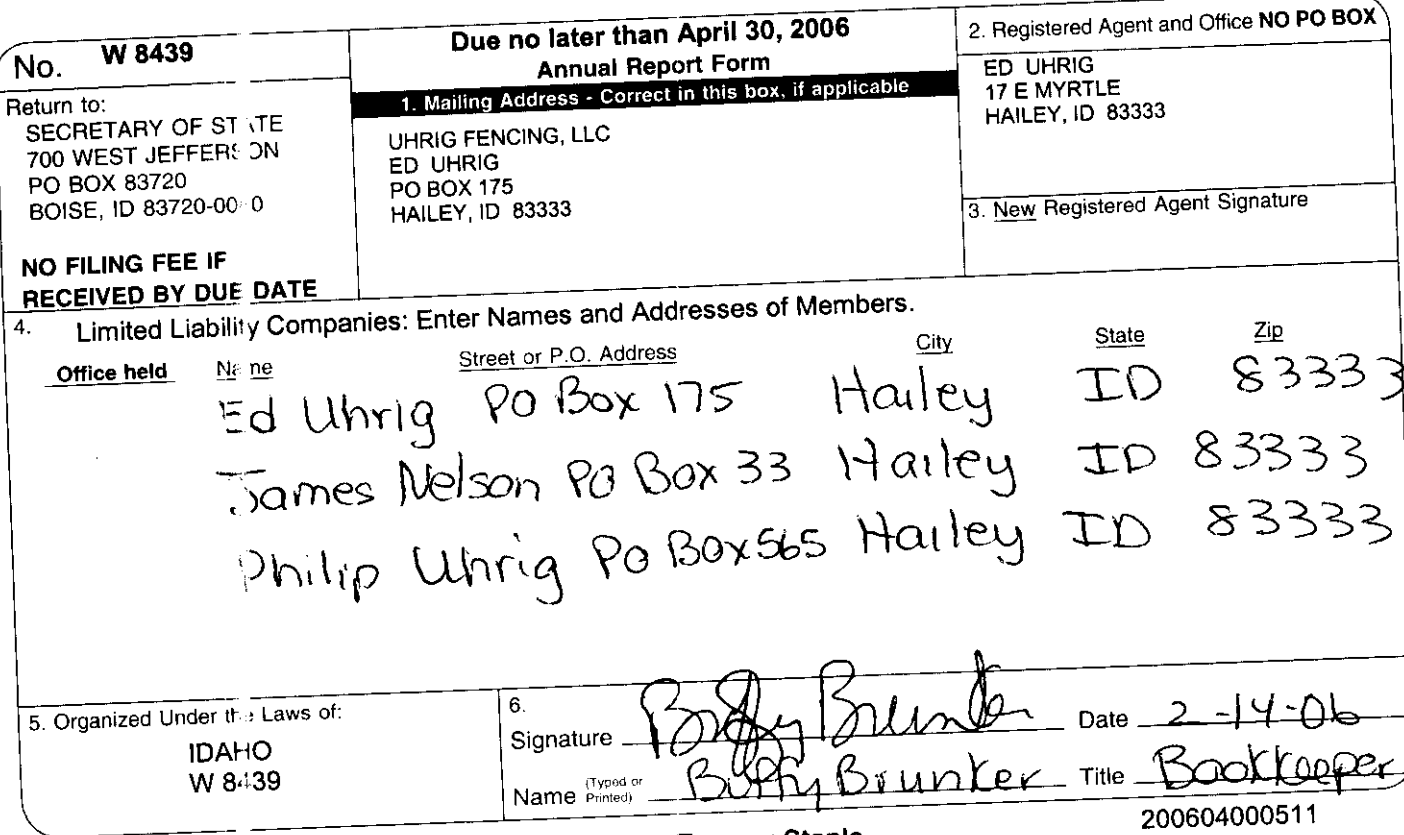 No. W 8439
Return to:
SECRETARY OF STATE
700 WEST JEFFERSON
PO BOX 83720
BOISE, ID 83720-0080
NO FILING FEE IF
RECEIVED BY DUE DATE
Due no later than April 30, 2006
Annual Report Form
1. Mailing Address - Correct in this box, if applicable
UHRIG FENCING, LLC
ED UHRIG
PO BOX 175
HAILEY, ID 83333
2. Registered Agent and Office NO PO BOX
ED UHRIG
17 E MYRTLE
HAILEY, ID 83333
3. New Registered Agent Signature
4. Limited Liability Companies: Enter Names and Addresses of Members.
Office held Name Street or P.O. Address City State Zip
Ed Uhrig PO Box 175 Hailey ID 83333
James Nelson PO Box 33 Hailey ID 83333
Philip Uhrig PO Box 565 Hailey ID 83333
5. Organized Under the Laws of:
IDAHO
W 8439
6.
Signature Buffy Brunker Date 2-14-06
Name (Typed or Printed) Buffy Brunker Title Bookkeeper
200604000511